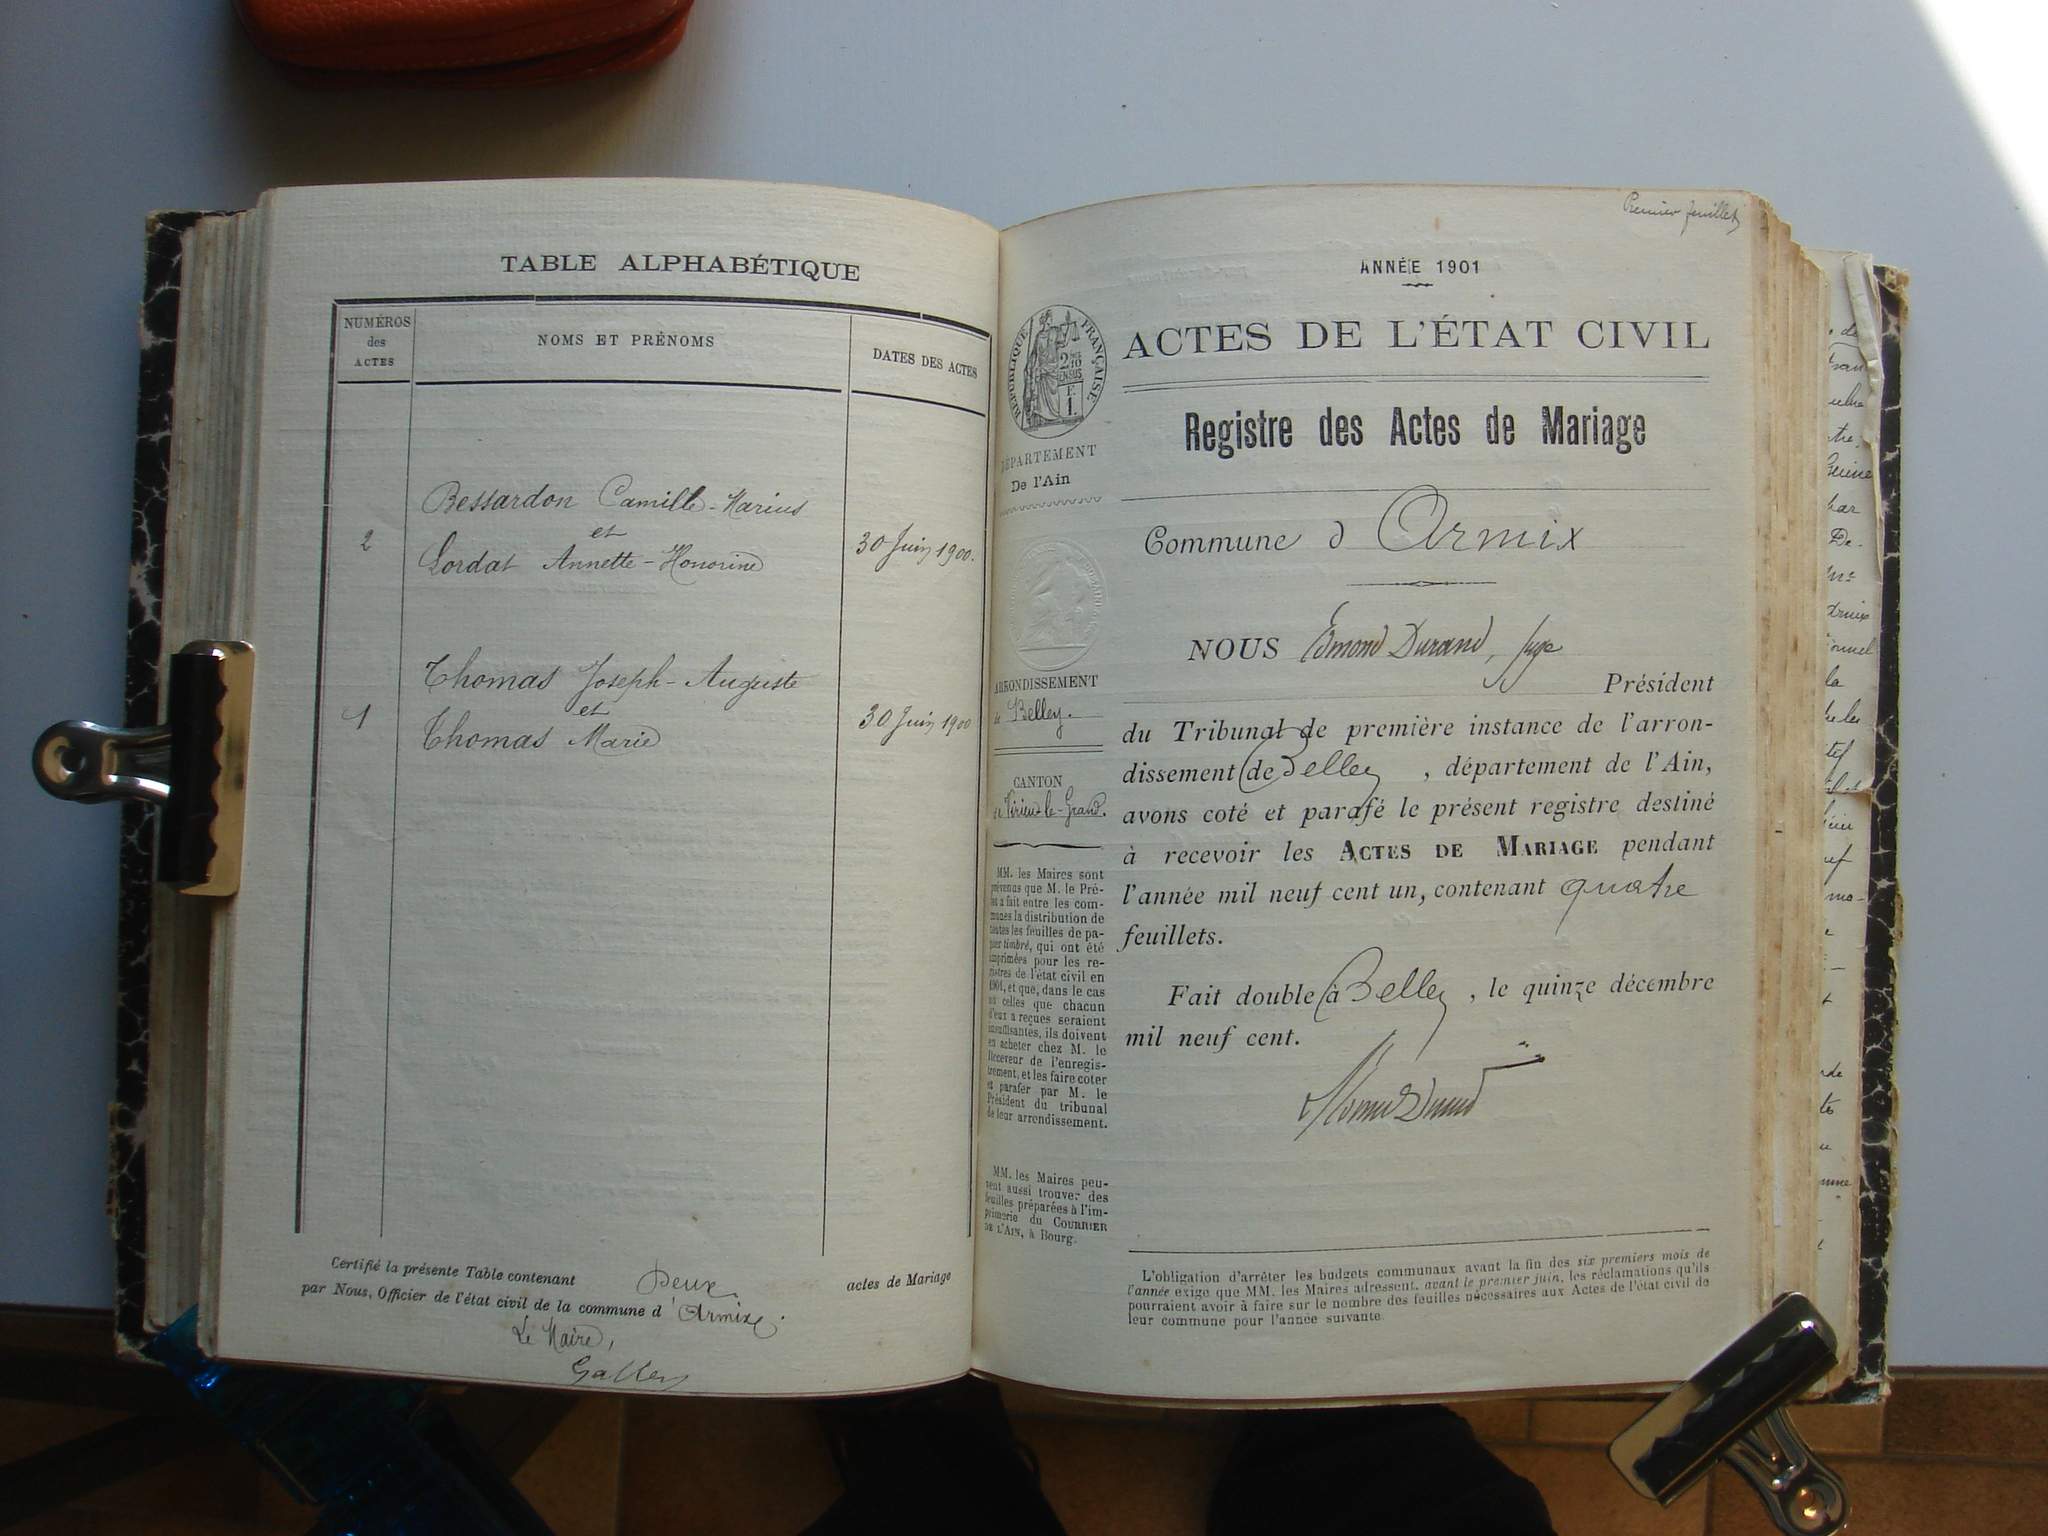 TABLE ALPHABÉTIQUE
NUMÉROS
des
ACTES
NOMS ET PRÉNOMS
DATES DES ACTES
Bessardon Camille-Marius
et
2
30 Juin 1900.
Lordat Annette-Honorine
Thomas Joseph-Auguste
et
1
30 Juin 1900
Thomas Marie
Certifié la présente Table contenant Deux. actes de Mariage
par Nous, Officier de l'état civil de la commune d Armix.
Le Maire,
Premier feuillet
ANNÉE 1901
ACTES DE L'ÉTAT CIVIL
RÉPUBLIQUE FRANÇAISE
Registre des Actes de Mariage
DÉPARTEMENT
De l'Ain
Commune d Armix
NOUS Edmond Durand, Juge
Président
ARRONDISSEMENT
de Belley.
du Tribunal de première instance de l'arron-
dissement de Belley, département de l'Ain,
avons coté et parafé le présent registre destiné
à recevoir les ACTES DE MARIAGE pendant
l'année mil neuf cent un, contenant quatre
feuillets.
Fait double à Belley, le quinze décembre
mil neuf cent.
Edmond Durand
CANTON
de Virieu-le-Grand.
MM. les Maires sont
prévenus que M. le Pré-
fet a fait entre les com-
munes la distribution de
toutes les feuilles de pa-
pier timbré, qui ont été
imprimées pour les re-
gistres de l'état civil en
1901, et que, dans le cas
où celles que chacun
d'eux a reçues seraient
insuffisantes, ils doivent
en acheter chez M. le
Receveur de l'enregis-
trement, et les faire coter
et parafer par M. le
Président du tribunal
de leur arrondissement.
MM. les Maires peu-
vent aussi trouver des
feuilles préparées à l'im-
primerie du COURRIER
DE L'AIN, à Bourg.
L'obligation d'arrêter les budgets communaux avant la fin des six premiers mois de
l'année exige que MM. les Maires adressent, avant le premier juin, les réclamations qu'ils
pourraient avoir à faire sur le nombre des feuilles nécessaires aux Actes de l'état civil de
leur commune pour l'année suivante.